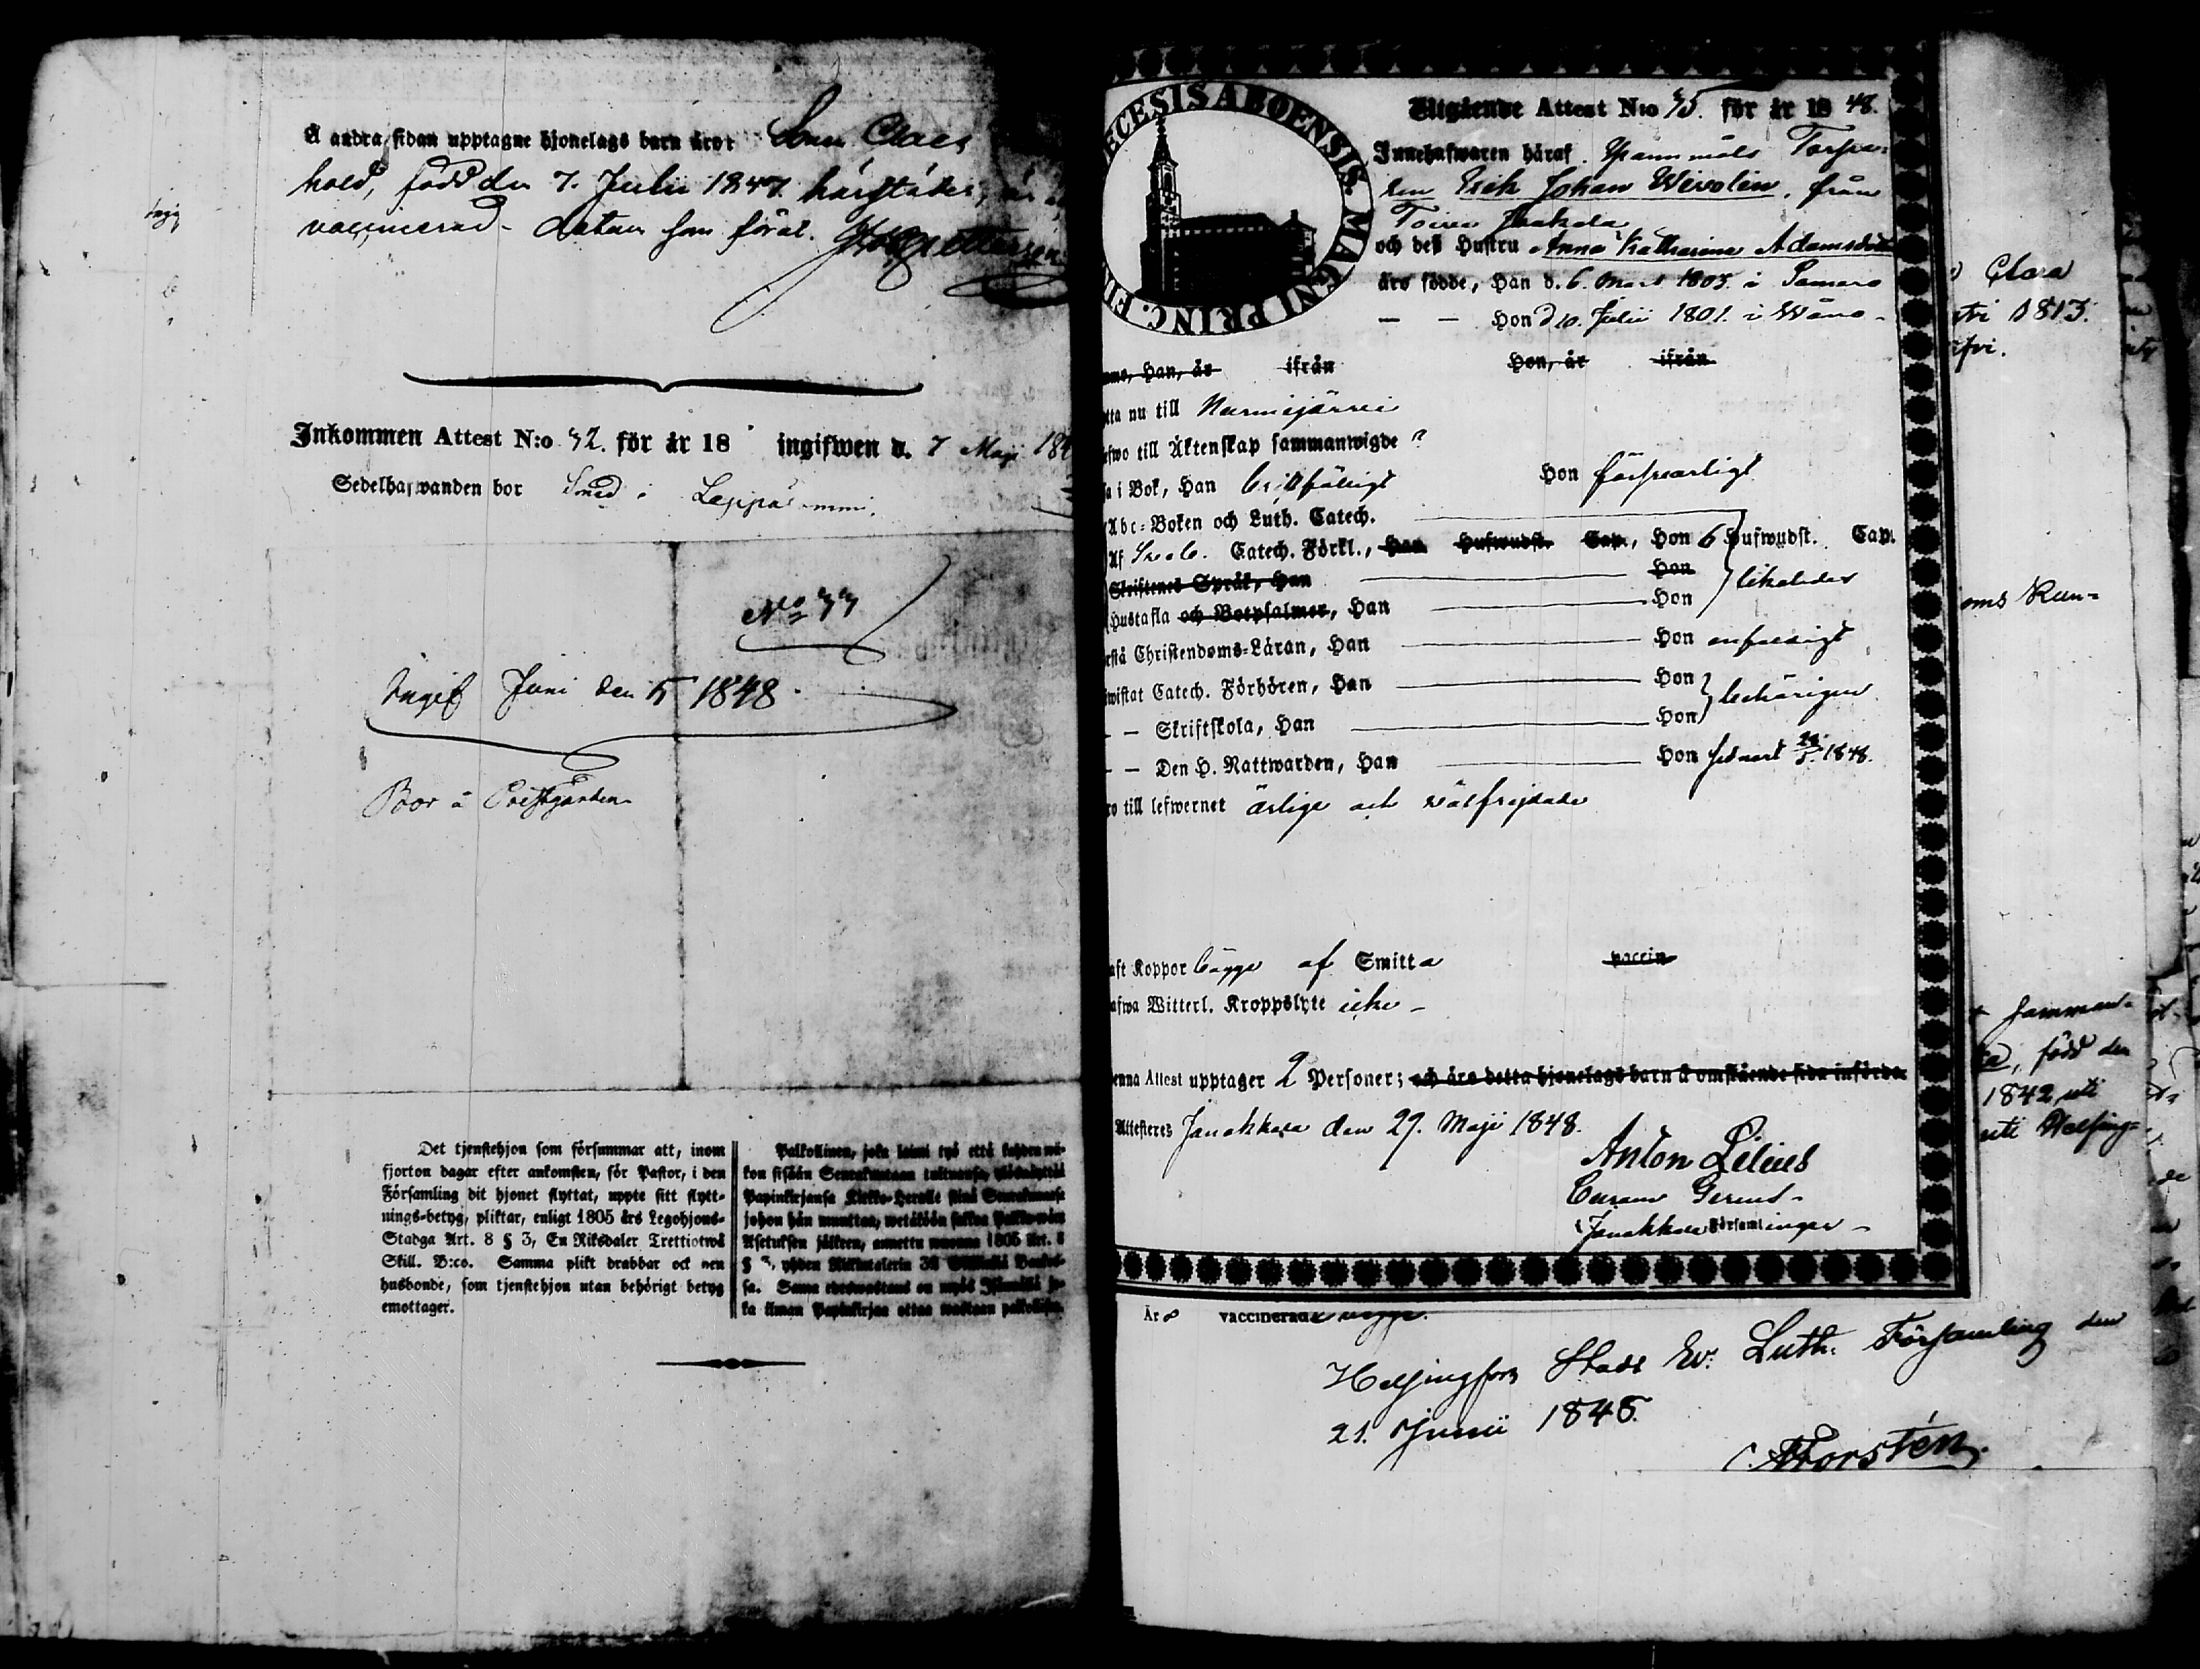 Å andra sidan upptagne hjonelags barn äro: Son Claes
hold, född den 7. Julii 1847. härstädes, är
vaccinerad. datum som förut.
Inkommen Attest N:o 42. för år 18 ingifwen d. 7 Maji 184
Sedelhafwanden bor Smed i
No 77
Ingif Juni den 5 1848.
Bor å Prestgården
Det tjenstehjon som försummar att, inom
fjorton dagar efter ankomsten, för Pastor, i den
Församling dit hjonet flyttat, uppte sitt flytt-
nings-betyg, pliktar, enligt 1805 års Legohjons-
Stadga Art. 8 § 3, En Riksdaler Trettiotwå
Skill. B:co. Samma plikt drabbar ock den
husbonde, som tjenstehjon utan behörigt betyg
emottager.
Palkollinen, joka laimi lyö että kahden wii-
kon sisään Seurakuntaan tultuansa, ylösnäyttää
Papinkirjansa Kirkko-Herralle siinä Seurakunnassa
johon hän muuttaa, wetäköön sakkoa Palkka-wäen
Asetuksen jälkeen, annettu wuonna 1805 Art. 8
§ 3, yhden Riikintalerin 32 Killinkiä Banko-
sa. Sama edeswastaus on myös Isännällä jo-
ka ilman Papinkirjaa ottaa wastaan palkollisen.
DIOECESIS ABOENSIS. MAGNI PRINC. FINL
Utgående Attest N:o 45. för år 18 48.
Innehafwaren häraf. Spannmåls Torpa-
ren Erik Johan Wivolin, från
Toivos Jaakola
och dess Hustru Anna Katharina Adamsdotter
äro födde, Han d. 6. Mart 1805. i Somero
— — Hon d 10. Julii 1801. i Wåno -
Han, år ifrån Hon, år ifrån
tta nu till Nurmijärvi
fwo till Äktenskap sammanwigde ?
a i Bok, Han Enfäldigt Hon försvarligt
Abc-Boken och Luth. Catech.
Af Sveb. Catech. Förkl., Han Hufwudst. Cap., Hon 6 Hufwudst. Cap.
Skriftenes Språk, Han Hon
likaledes
Hustafla och Botpsalmer, Han Hon
rstå Christendoms-Läran, Han Hon enfaldigt
wistat Catech. Förhören, Han Hon
behörigen
— — Skriftskola, Han Hon
— — Den H. Nattwarden, Han Hon sednast 28/5. 1848.
ro till lefwernet ärlige och wälfrejdade
aft Koppor bägge af Smitta vaccin
afwa Witterl. Kroppslyte icke -
enna Attest upptager 2 Personer; och äro detta hjonelags barn å omstående sida införda.
Attesteres Janakkala den 29. Maji 1848.
Anton Lilius
Curam Gerens -
Janakkala Församlingar -
Är o vaccinerad
Helsingfors Stads Ev: Luth: Församling den
21. Junii 1845.
Forstén.
Clara
1813.
Run-
samman-
född den
1842, uti
uti Helsing-